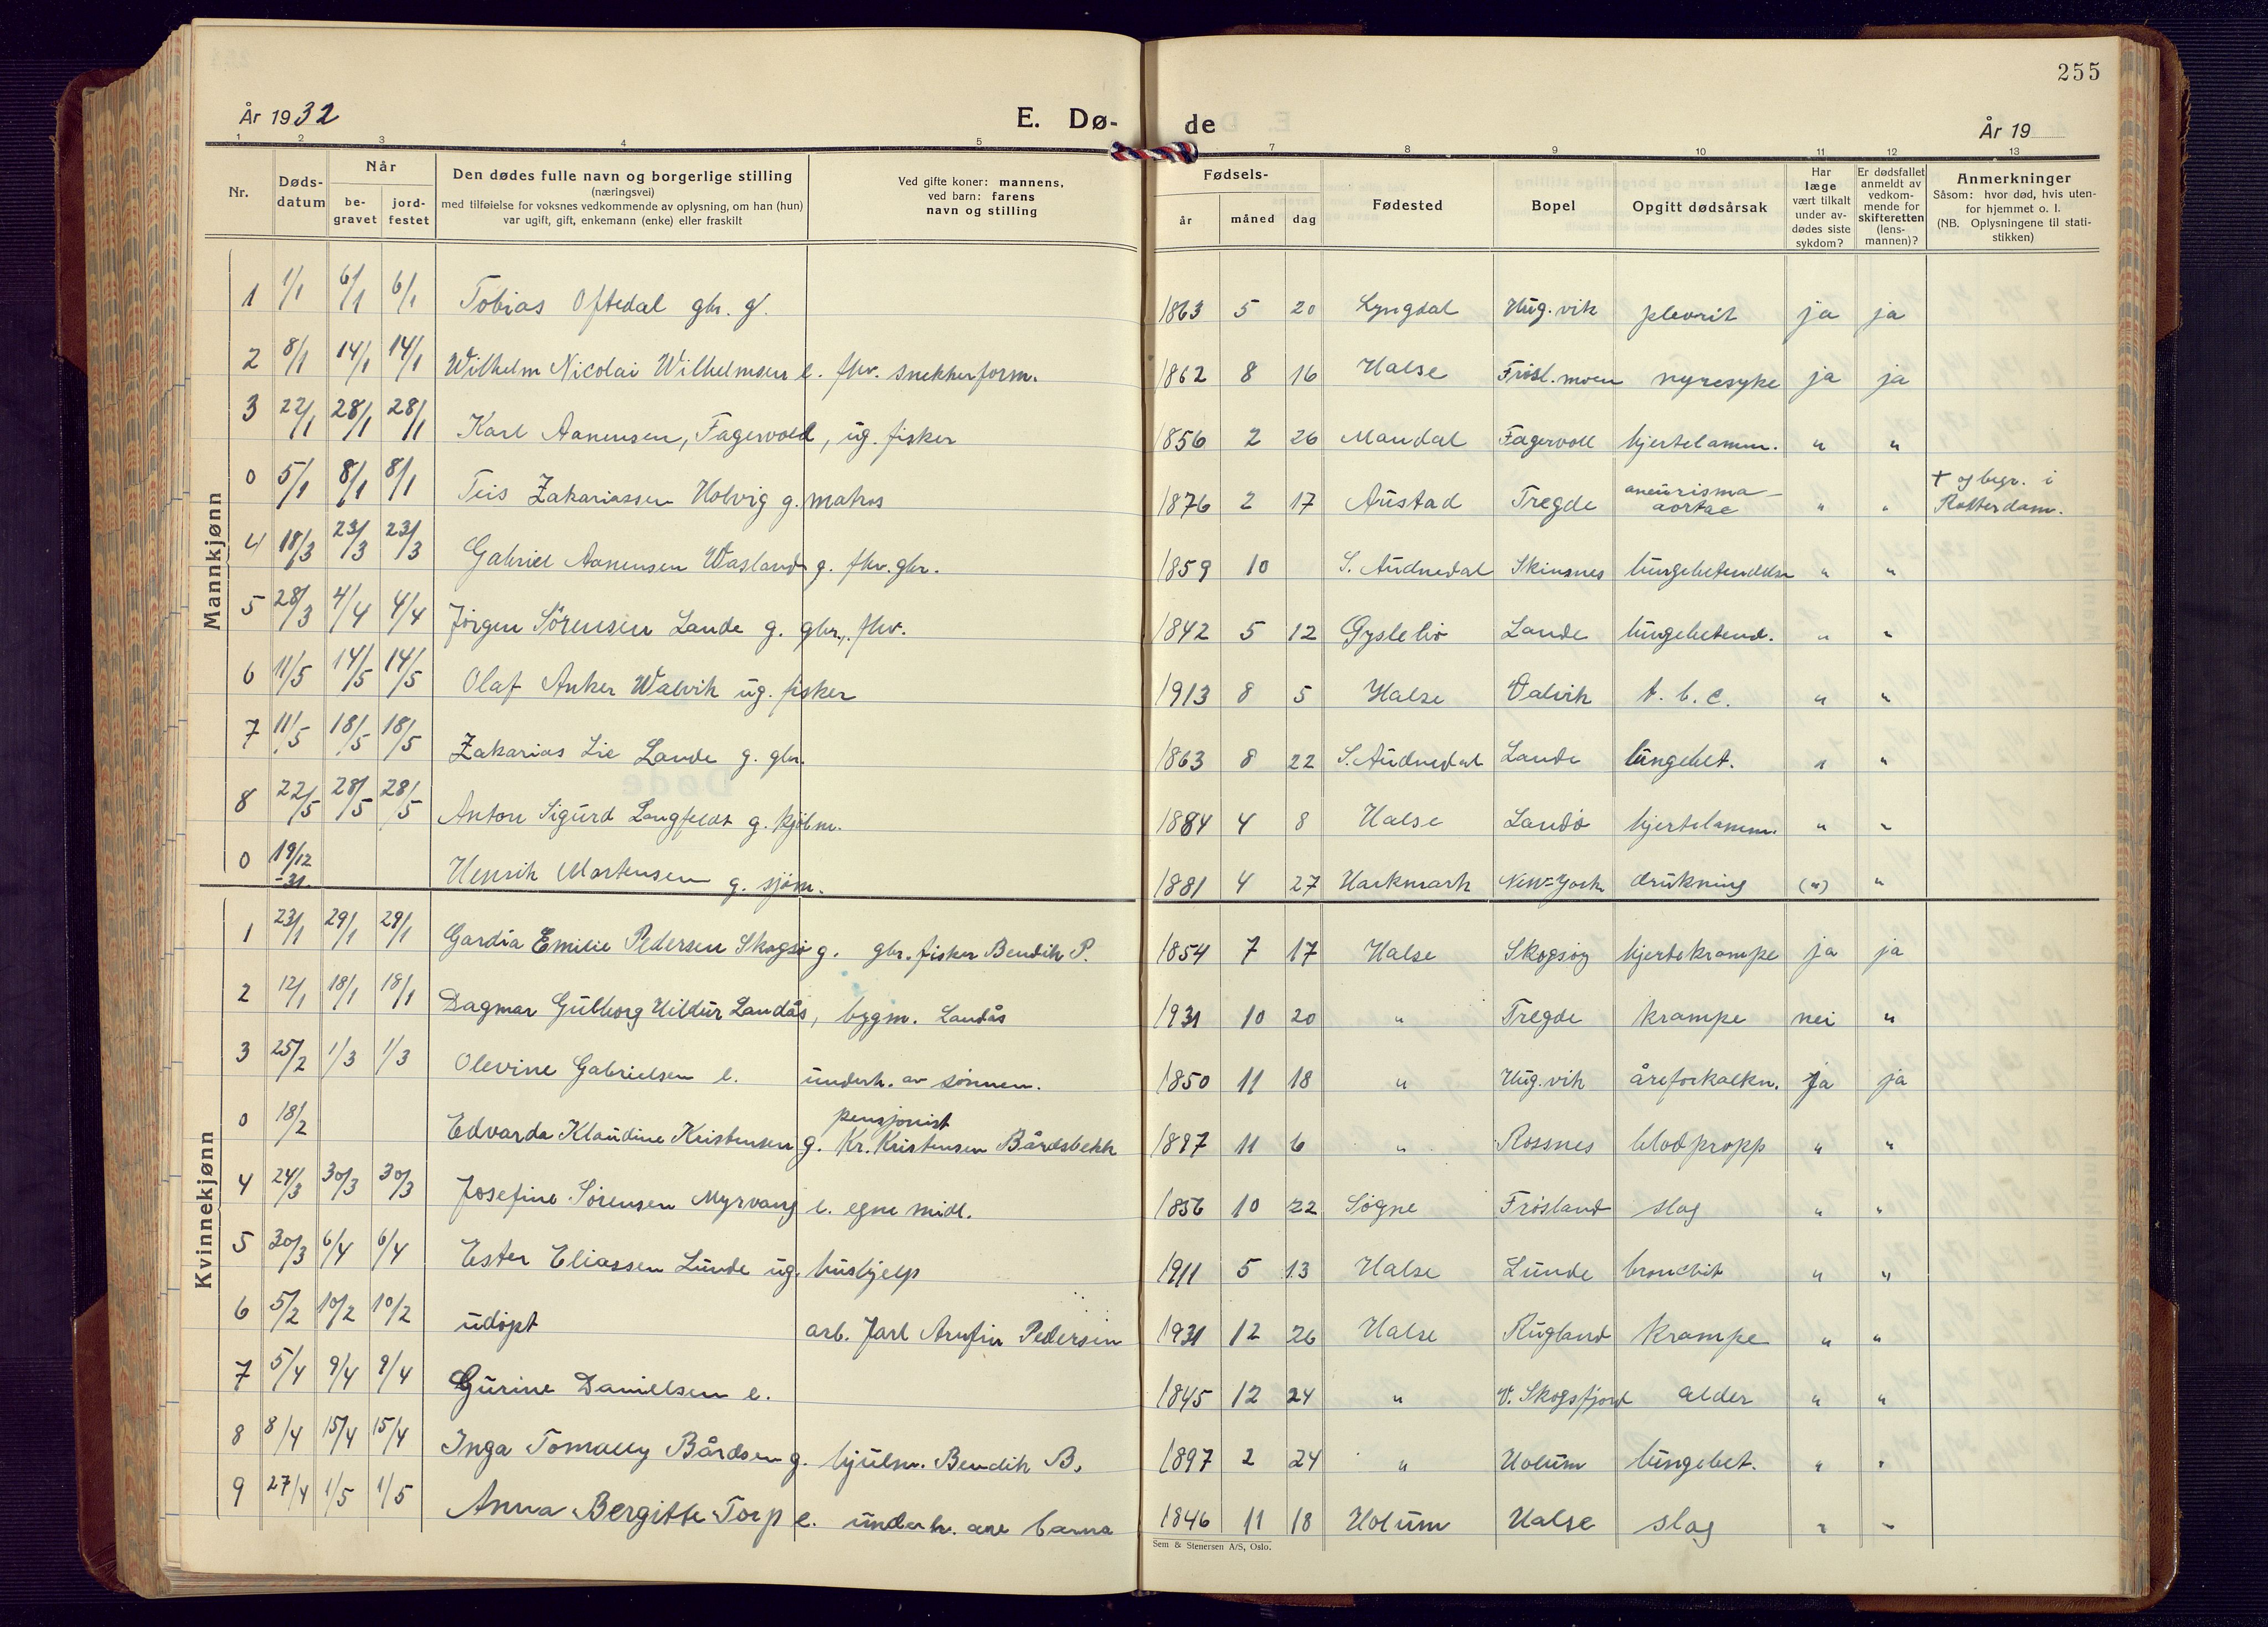 255
År 1932
E. Dø-
de
År 19
1 2 3 4 5 7 8 9 10 11 12 13
Nr.
Døds-
datum
Når
be-
gravet
jord-
festet
Den dødes fulle navn og borgerlige stilling
(næringsvei)
med tilføielse for voksnes vedkommende av oplysning, om han (hun)
var ugift, gift, enkemann (enke) eller fraskilt
Ved gifte koner: mannens,
ved barn: farens
navn og stilling
Fødsels-
år måned dag
Fødested
Bopel
Opgitt dødsårsak
Har
læge
vært tilkalt
under av-
dødes siste
sykdom?
Er dødsfallet
anmeldt av
vedkom-
mende for
skifteretten
(lens-
mannen)?
Anmerkninger
Såsom: hvor død, hvis uten-
for hjemmet o. l.
(NB. Oplysningene til stati-
stikken)
Mannkjønn
1 1/1 6/1 6/1 Tobias Oftedal gbr. g. 1863 5 20 Lyngdal Ung.vik plevrit ja ja
2 8/1 14/1 14/1 Wilhelm Nicolai Wilhelmsen e. fhv. snekkerform. 1862 8 16 Halse Frøsl.moen nyresyke ja ja
3 22/1 28/1 28/1 Karl Aanensen, Fagervold, ug. fisker 1856 2 26 Mandal Fagervoll hjertelamm. " "
0 5/1 8/1 8/1 Teis Zakariassen Holvig g. matros 1876 2 17 Austad Tregde aneurisma-
aortae " " + og begr. i
Rotterdam.
4 18/3 23/3 23/3 Gabriel Aanensen Wasland g. fhv. gbr. 1859 10 S. Audnedal Skinsnes lungebetendelse " "
5 28/3 4/4 4/4 Jørgen Sörensen Lande g. gbr., fhv. 1842 5 12 Gyslebö Lande lungebetend. " "
6 11/5 14/5 14/5 Olaf Anker Walvik ug. fisker 1913 8 5 Halse Valvik t. b. c. " "
7 11/5 18/5 18/5 Zakarias Lie Lande g. gbr. 1863 8 22 S. Audnedal Lande lungebet. " "
8 22/5 28/5 28/5 Anton Sigurd Langfeldt g. kjöbm. 1884 4 8 Halse Landö hjertelamm. " "
0 19/12 -31. Henrik Martensen g. sjøm. 1881 4 27 Harkmark New-York drukning (") "
Kvinnekjønn
1 23/1 29/1 29/1 Gardia Emilie Pedersen Skogsö g. gbr. fisker Bendik P. 1854 7 17 Halse Skogsöy hjertekrampe ja ja
2 12/1 18/1 18/1 Dagmar Gulborg Hildur Landås, bygm. Landås 1931 10 20 " Tregde krampe nei "
3 25/2 1/3 1/3 Olevine Gabrielsen e. underh. av sönnen. 1850 11 18 " Ung.vik åreforkalkn. ja ja
pensjonist
0 18/2 Edvarda Klaudine Kristensen g. Kr. Kristensen Bårdsbekk 1897 11 6 " Rossnes blodpropp " "
4 24/3 30/3 30/3 Josefine Sörensen Myrvang e. egne midl. 1856 10 22 Søgne Frøsland slag " "
5 30/3 6/4 6/4 Ester Eliassen Lunde ug. hushjelp 1911 5 13 Halse Lunde bronchit " "
6 5/2 10/2 10/2 udöpt arb. Jarl Arnfin Pedersen 1931 12 26 Halse Rugland krampe " "
7 5/4 9/4 9/4 Gurine Danielsen e. 1845 12 24 " V. Skogsfjord alder " "
8 8/4 15/4 15/4 Inga Tomally Bårdsen g. hjulm. Bendik B. 1897 2 24 " Holum lungebet. " "
9 27/4 1/5 1/5 Anna Bergitte Torp e. underh. av barna 1846 11 18 Holum Halse slag " "
Sem & Stenersen A/S, Oslo.